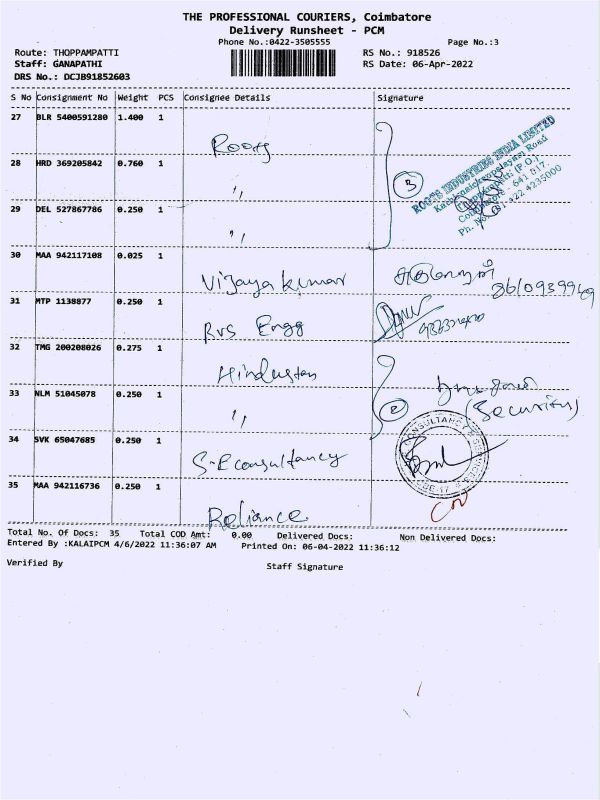 THE PROFESSIONAL COURIERS, Coimbatore
Delivery Runsheet - PCM
Phone No.:0422-3505555 Page No.:3
Route: THOPPAMPATTI RS No.: 918526
Staff: GANAPATHI RS Date: 06-Apr-2022
DRS No.: DCJB91852603
S No Consignment No Weight PCS Consignee Details Signature
27 BLR 5400591280 1.400 1 Roots
28 HRD 369205842 0.760 1 ,,
3
29 DEL 527867786 0.250 1 ,,
ROOTS INDUSTRIES INDIA LIMITED
Kathirnaickenpalayam Road
Thoppampatti (P.O.),
Coimbatore - 641 017.
Ph. No. 422 4235000
30 MAA 942117108 0.025 1 Vijaya kumar
31 MTP 1138877 0.250 1 RVS Engg
32 TMG 200208026 0.275 1 Hindustan
33 NLM 51045078 0.250 1 ,,
2
(Security)
34 SVK 65047685 0.250 1 S-R consultancy
CONSULTANCY
35 MAA 942116736 0.250 1 Reliance
Total No. Of Docs: 35 Total COD Amt: 0.00 Delivered Docs: Non Delivered Docs:
Entered By :KALAIPCM 4/6/2022 11:36:07 AM Printed On: 06-04-2022 11:36:12
Verified By Staff Signature